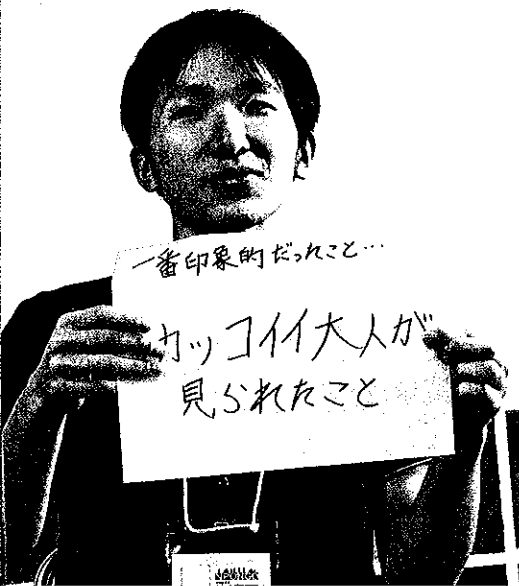 一番印象的だったこと…
カッコイイ大人が
見られたこと